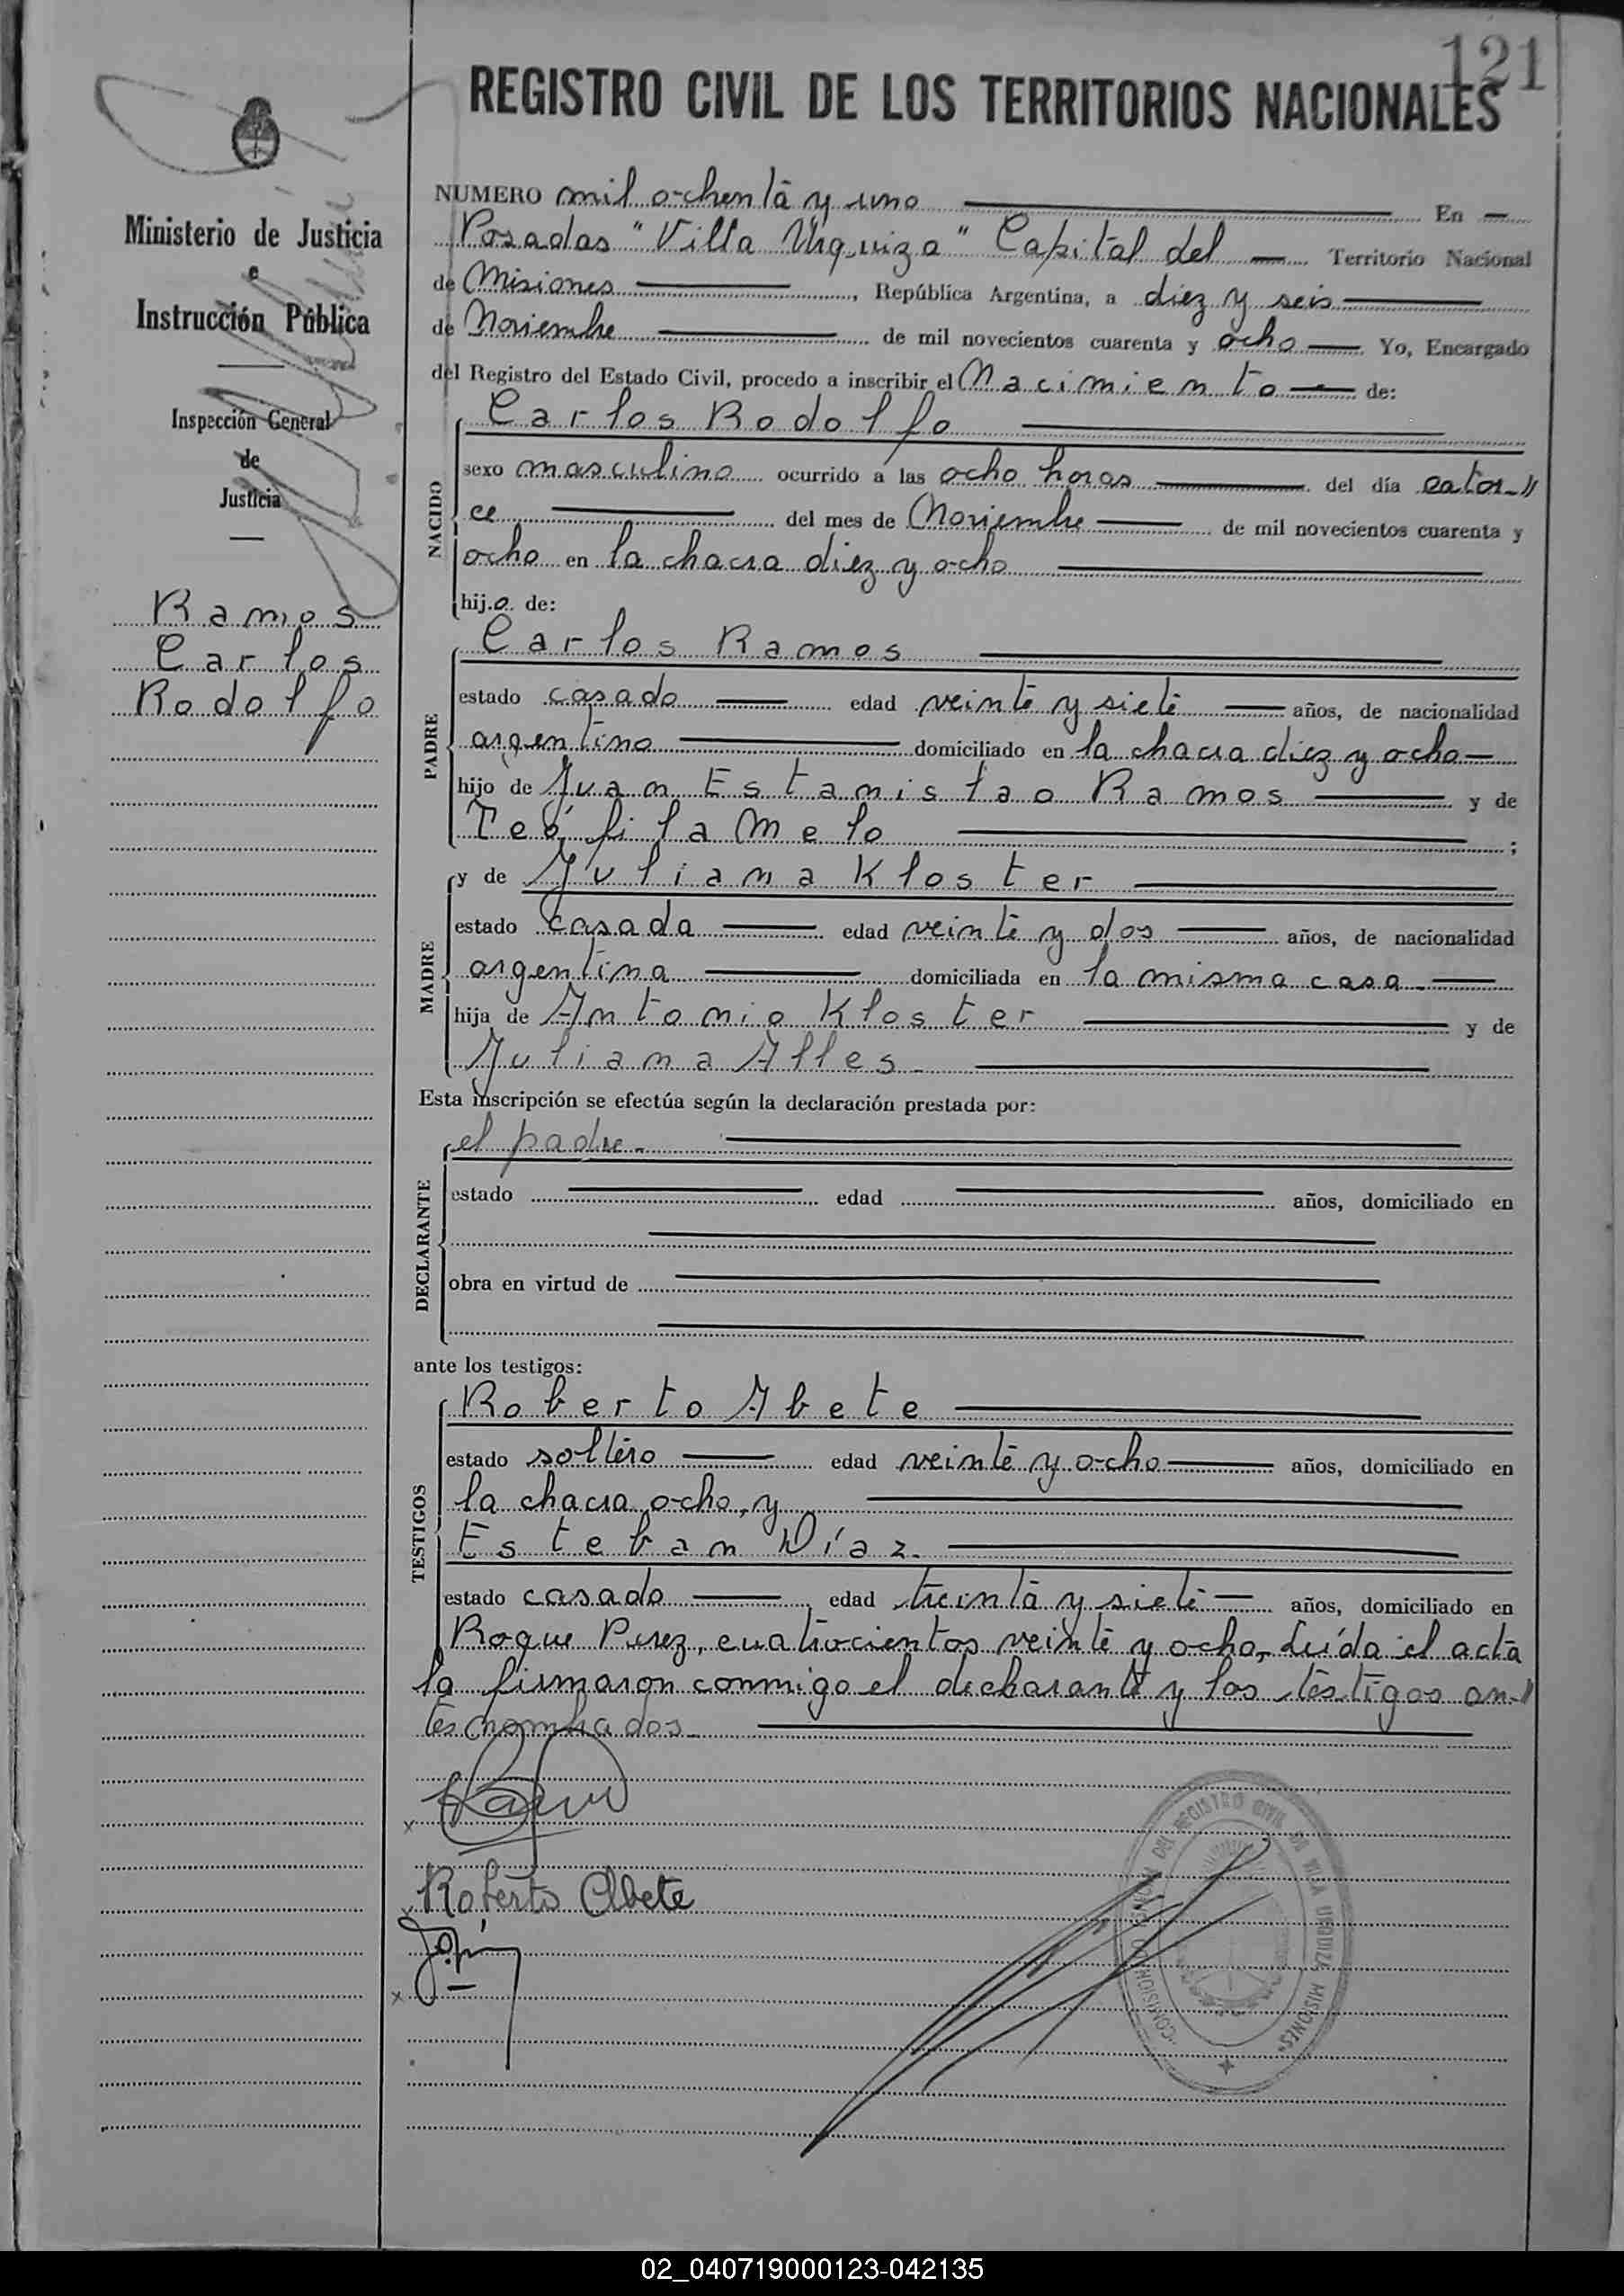 121
REGISTRO CIVIL DE LOS TERRITORIOS NACIONALES
Ministerio de Justicia
e
Instrucción Pública
Inspección General
de
Justicia
Ramos
Carlos
Rodolfo
NUMERO mil ochenta y uno En
Posadas "Villa Urquiza" Capital del Territorio Nacional
de Misiones, República Argentina, a diez y seis
de Noviembre de mil novecientos cuarenta y ocho Yo, Encargado
del Registro del Estado Civil, procedo a inscribir el Nacimiento de:
Carlos Rodolfo
NACIDO
sexo masculino ocurrido a las ocho horas del día cator-"
ce del mes de Noviembre de mil novecientos cuarenta y
ocho en la chacra diez y ocho
hijo de:
PADRE
Carlos Ramos
estado casado edad veinte y siete años, de nacionalidad
argentino domiciliado en la chacra diez y ocho
hijo de Juan Estanislao Ramos y de
Teófila Melo ;
MADRE
y de Juliana Kloster
estado casada edad veinte y dos años, de nacionalidad
argentina domiciliada en la misma casa.
hija de Antonio Kloster y de
Juliana Alles.
Esta inscripción se efectúa según la declaración prestada por:
DECLARANTE
el padre.
estado edad años, domiciliado en
obra en virtud de
ante los testigos:
TESTIGOS
Roberto Abete
estado soltero edad veinte y ocho años, domiciliado en
la chacra ocho, y
Esteban Díaz.
estado casado edad treinta y siete años, domiciliado en
Roque Perez, cuatrocientos veinte y ocho, Leída el acta
la firmaron conmigo el declarante y los testigos an-"
tes nombrados.
Roberto Abete
DEL REGISTRO CIVIL DE VILLA URQUIZA MISIONES
02_040719000123-042135